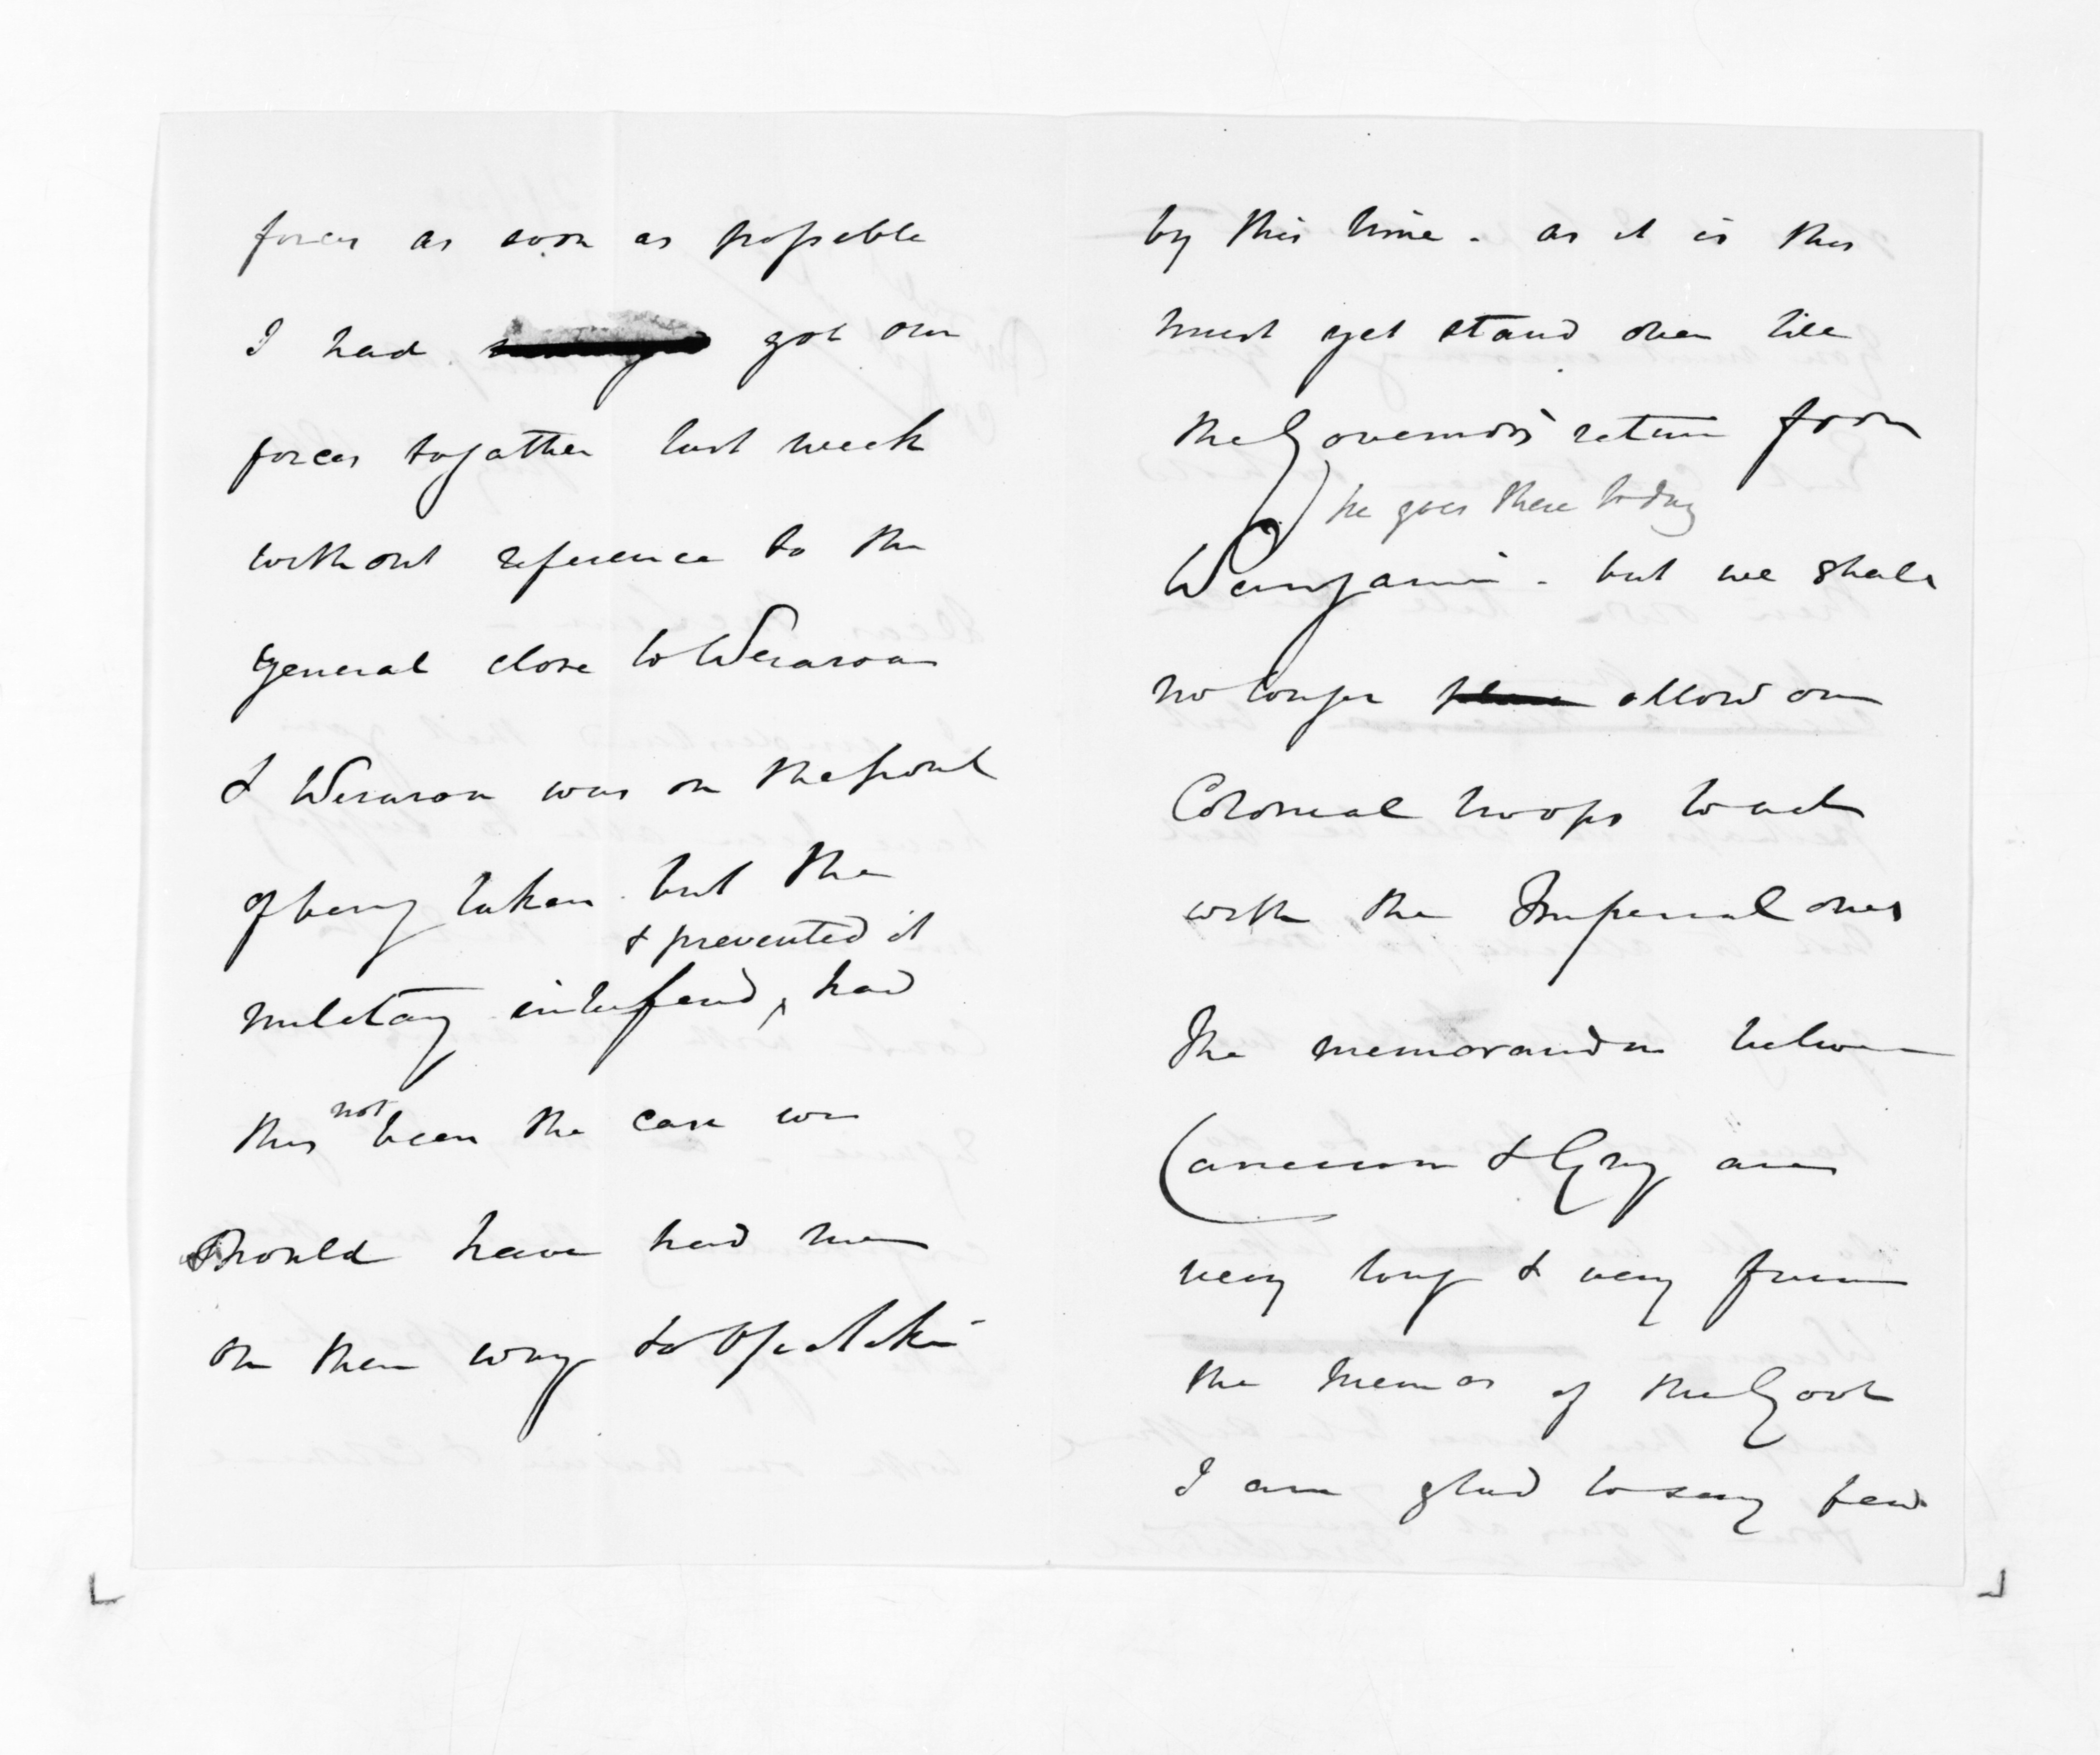 forces as soon as possible
I had got our
forces together last week
without reference to the
general close to Weraroa
& Weraroa was on the point
of being taken. but the
& prevented it
military interfered, had
this not been the case we
should have had men
on their way to Opotiki
by this time. as it is this
must yet stand over till
the Governor's return from
he goes there today
Wanganui - but we shall
no longer allow our
Colonial troops to act
with the Imperial ones
The memoranda between
Cameron & Grey are
very long & very
the memos of the Govt
I am glad to say few